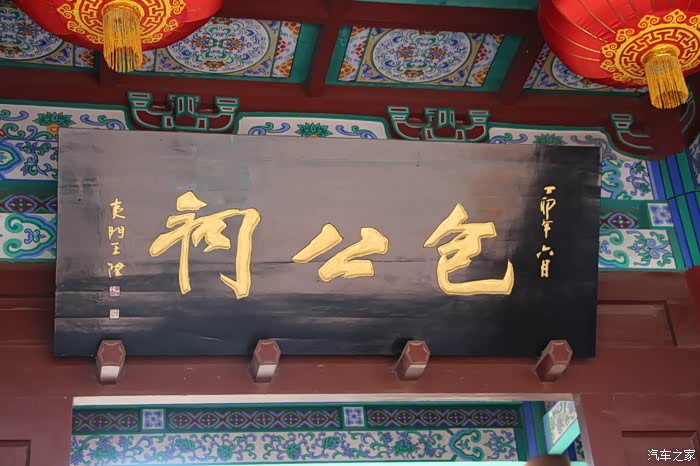 丁卯年六月
包公祠
夷门王澄
汽车之家